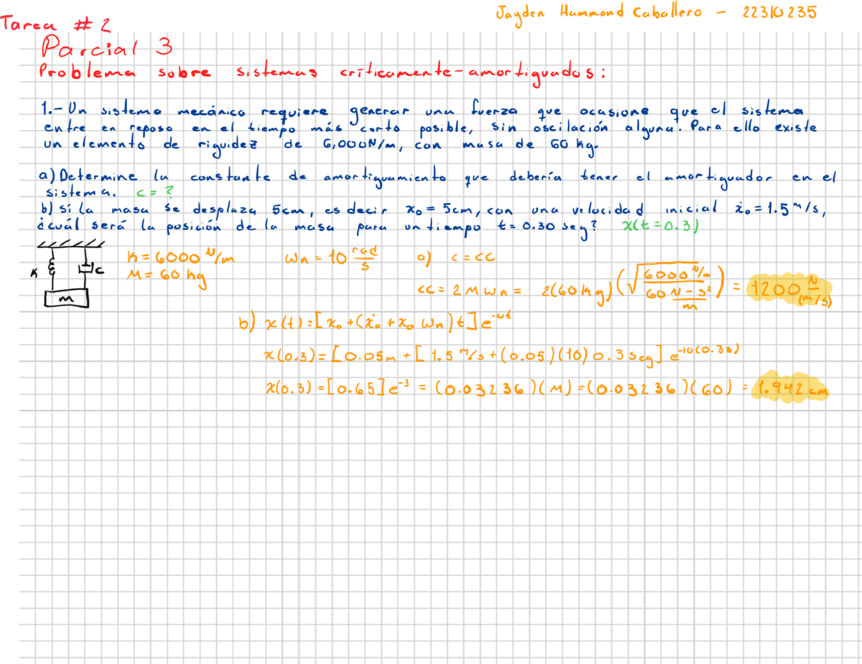 Jayden Hammond Caballero - 22310235
Tarea # 2
Parcial 3
Problema sobre sistemas críticamente-amortiguados:
1.- Un sistema mecánico requiere generar una fuerza que ocasione que el sistema
entre en reposo en el tiempo más corto posible, sin oscilación alguna. Para ello existe
un elemento de rigidez de 6,000N/m, con masa de 60 kg.
a) Determine la constante de amortiguamiento que debería tener el amortiguador en el
sistema. c = ?
b) Si la masa se desplaza 5cm, es decir x₀ = 5cm, con una velocidad inicial ẋ₀ = 1.5 m/s,
¿cuál será la posición de la masa para un tiempo t = 0.30 seg? x(t = 0.3)
K = 6000 N/m ωn = 10 rad/s a) c = cc
K c M = 60 kg
m cc = 2 M ωn = 2(60kg) (√(6000 N/m / 60 N-s²/m)) = 1200 N/(m/s)
b) x(t) = [x₀ + (ẋ₀ + x₀ ωn) t] e^-ωt
x(0.3) = [0.05m + [1.5 m/s + (0.05)(10) 0.3 seg] e^-10(0.30)
x(0.3) = [0.65] e^-3 = (0.03236)(M) = (0.03236)(60) = 1.942 cm